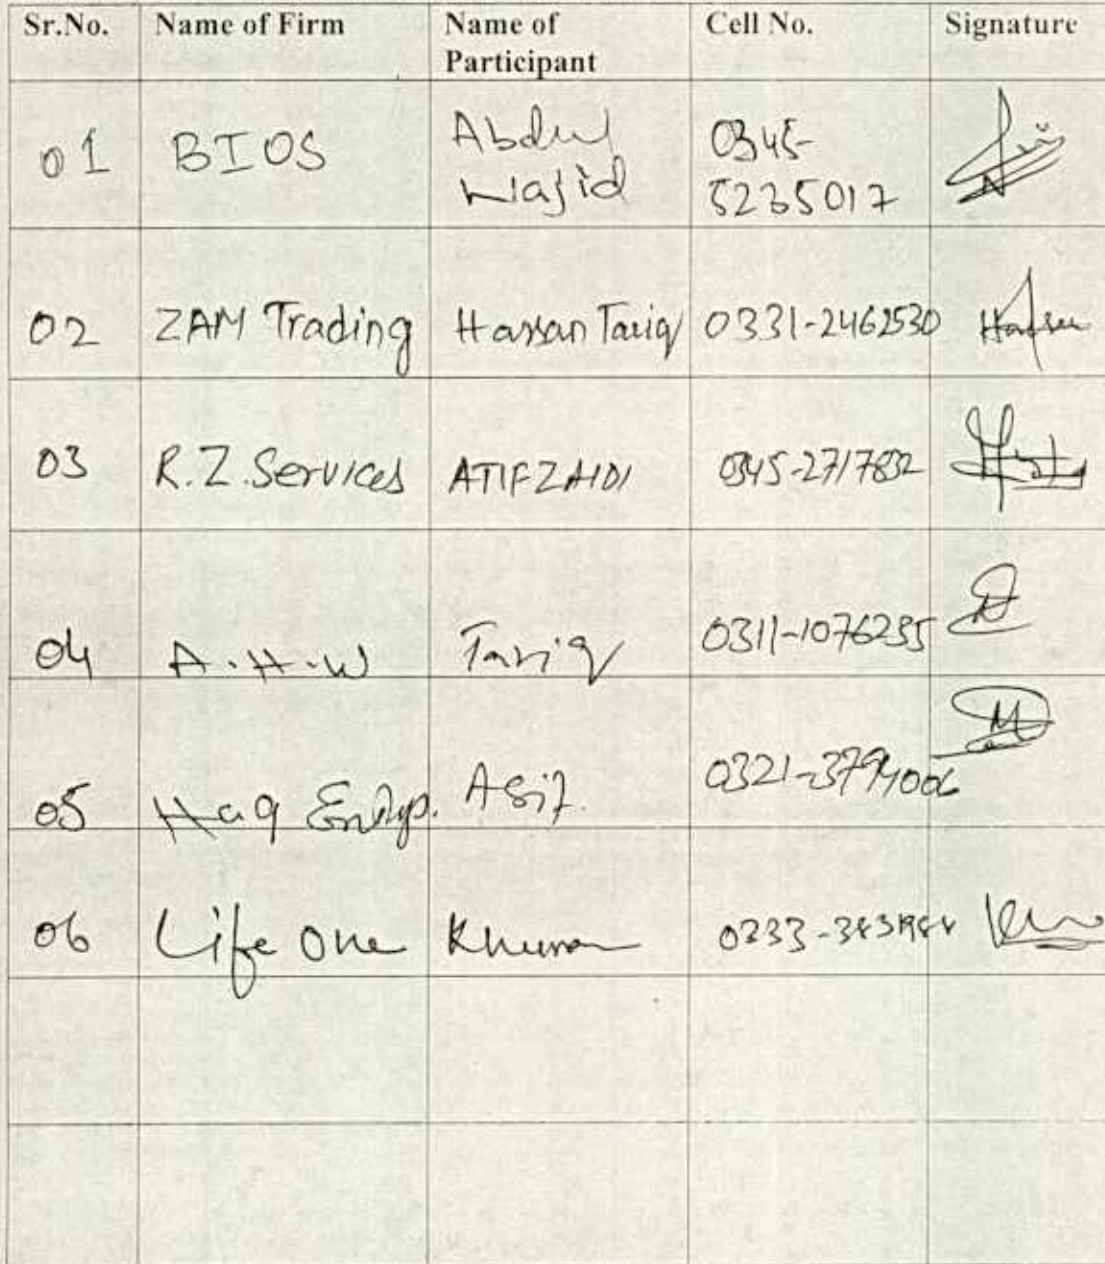 Sr.No. Name of Firm Name of Participant Cell No. Signature
01 BIOS Abdul Wajid 0345-5235017
02 ZAM Trading Hassan Tariq 0331-2462530
03 R.Z. Services ATIF ZAIDI 0345-2717832
04 A.H.W Tariq 0311-1076235
05 Haq Entrp. Asif. 0321-3794006
06 Life One Khurram 0333-